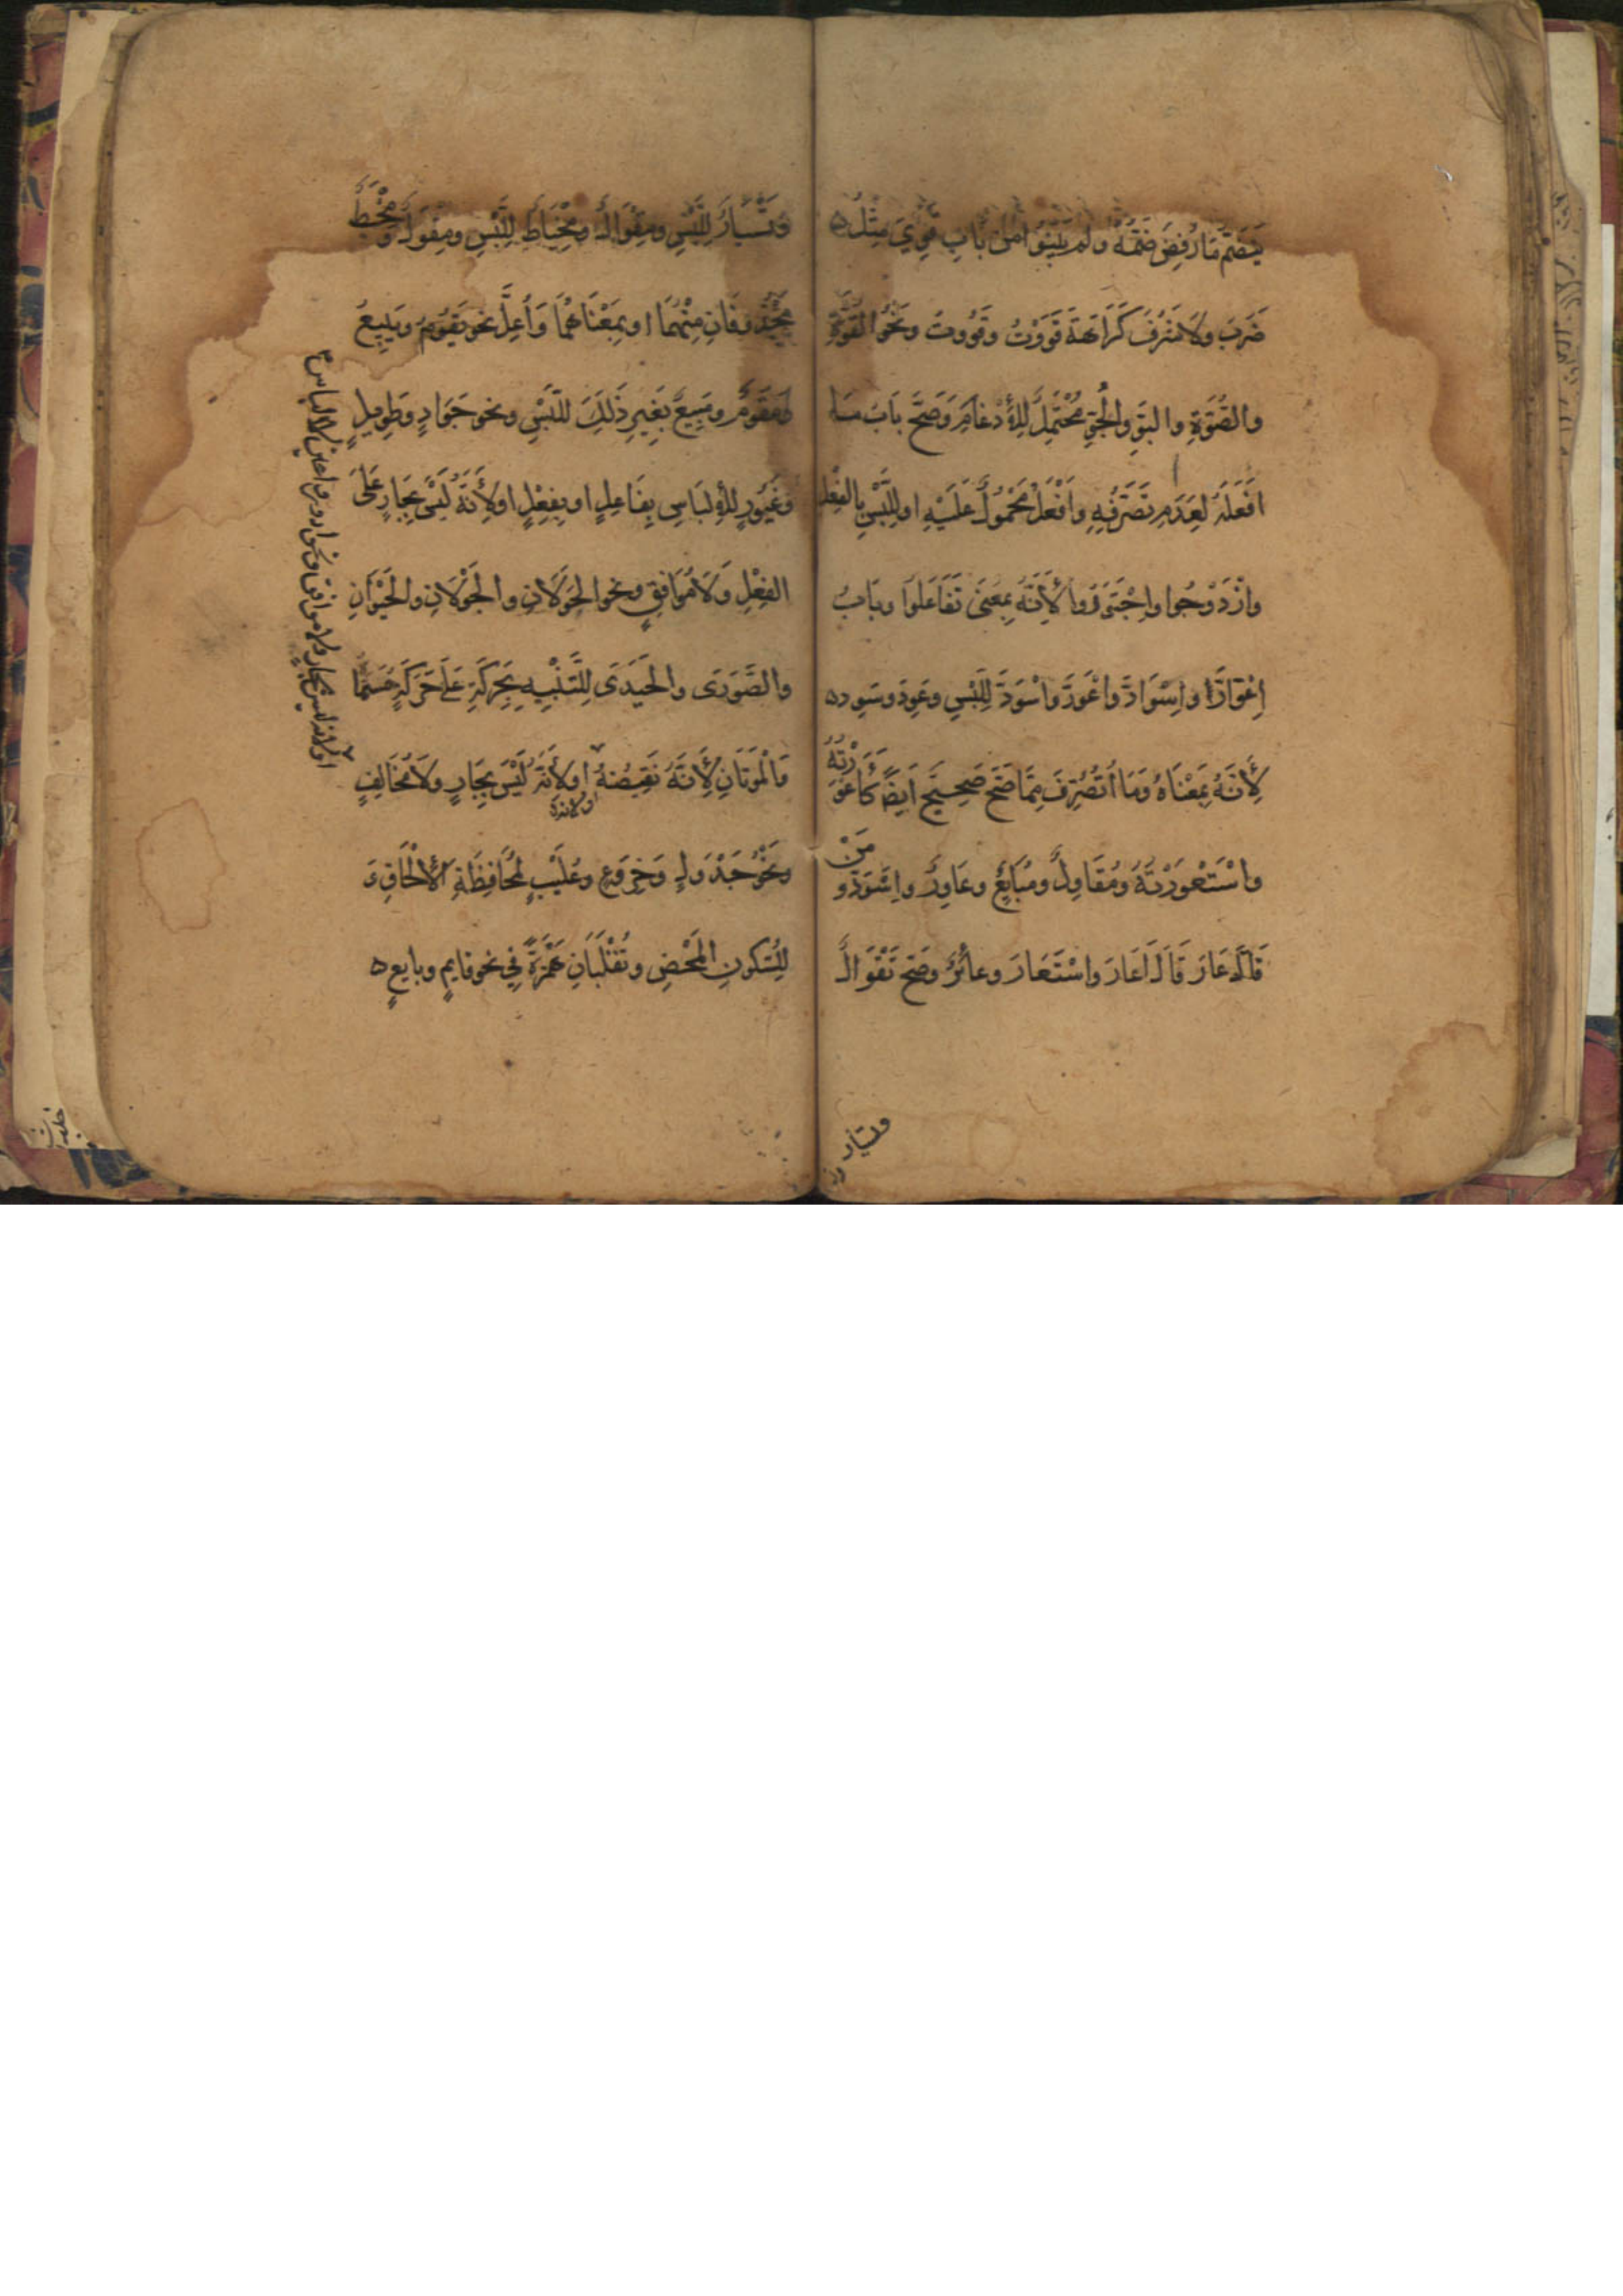 يَضُمُّ مَا رُفِضَ ضَمُّهُ ولم يَبْنُوا مِنْ بَابِ قَوِيَ مِثْلُ
ضَرَبَ ولا شَرُفَ كَرَاهَةَ قَوَوْتُ وقَوُوتُ ونَحْوُ القُوَّةِ
والصُّوَّةِ والبَوِّ والجَوِّ مُحْتَمِلٌ لِلْأِدْغَامِ وَصَحَّ بَابُ مَا
اَفْعَلَهُ لِعَدَمِ تَصَرُّفِهِ وَاَفْعَلُ مَحْمُولٌ عَلَيْهِ او لِلَّبْسِ بِالفِعْلِ
وازْدَوَجُوا واِجْتَوَرُوا لِأَنَّهُ بِمَعْنَى تَفَاعَلُوا وبَابُ
اِعْوَارَّ واِسْوَادَّ واعْوَرَّ واسْوَدَّ لِلَّبْسِ وعَوِرَ وسَوِدَ
لِأَنَّهُ بِمَعْنَاهُ وَمَا اتُصُرِّفَ مِمَّا صَحَّ صَحِيحٌ اَيْضًا كَأَعْوَرْتُهُ
واسْتَعْوَرْتُهُ ومُقَاوِلٌ ومُبَايِعٌ وعَاوِرٌ واسْوَدَّ ومَنْ
قَالَ عَارَ قَالَ اَعَارَ واسْتَعَارَ وعائِرٌ وصَحَّ تَقْوَالٌ
وتسيار
وَتَسْيَارٌ لِلَّبْسِ ومِقْوَالٌ ومِخْيَاطٌ لِلَّبْسِ ومِقْوَلٌ ومِخْيَطٌ
مَحْذُوفَانِ مِنْهُمَا او بِمَعْنَاهُمَا وَأُعِلَّ نحو يَقُومُ ويَبِيعُ
ومَقُومٌ ومَبِيعٌ بِغَيرِ ذَلِكَ لِلَّبْسِ ونحو جَوَادٍ وطَوِيلٍ
وغَيُورٍ لِلْأِلْبَاسِ بِفَاعِلٍ او بِفِعْلٍ او لِأَنَّهُ لَيْسَ بِجَارٍ عَلَى
الفِعْلِ وَلَا مُوَافِقٍ ونحو الجَوَلَانِ والحَيَوَانِ
والصَّوَرَى والحَيَدَى لِلتَّنْبِيهِ بِحَرَكَتِهِ عَلَى حَرَكَةِ مُسَمَّاهُ
وَالْمَوَتَانِ لِأَنَّهُ نَقِيضُهُ او لِأَنَّهُ لَيْسَ بِجَارٍ ولَا مُخَالِفٍ
ونَحْوُ جَدْوَلٍ وَخِرْوَعٍ وعُلْيَبٍ لِمُحَافَظَةِ الْأِلْحَاقِ وَ
لِلسُّكُونِ المَحْضِ وتُقْلَبَانِ هَمْزَةً فِي نحو قَايِمٍ وبَايِعٍ